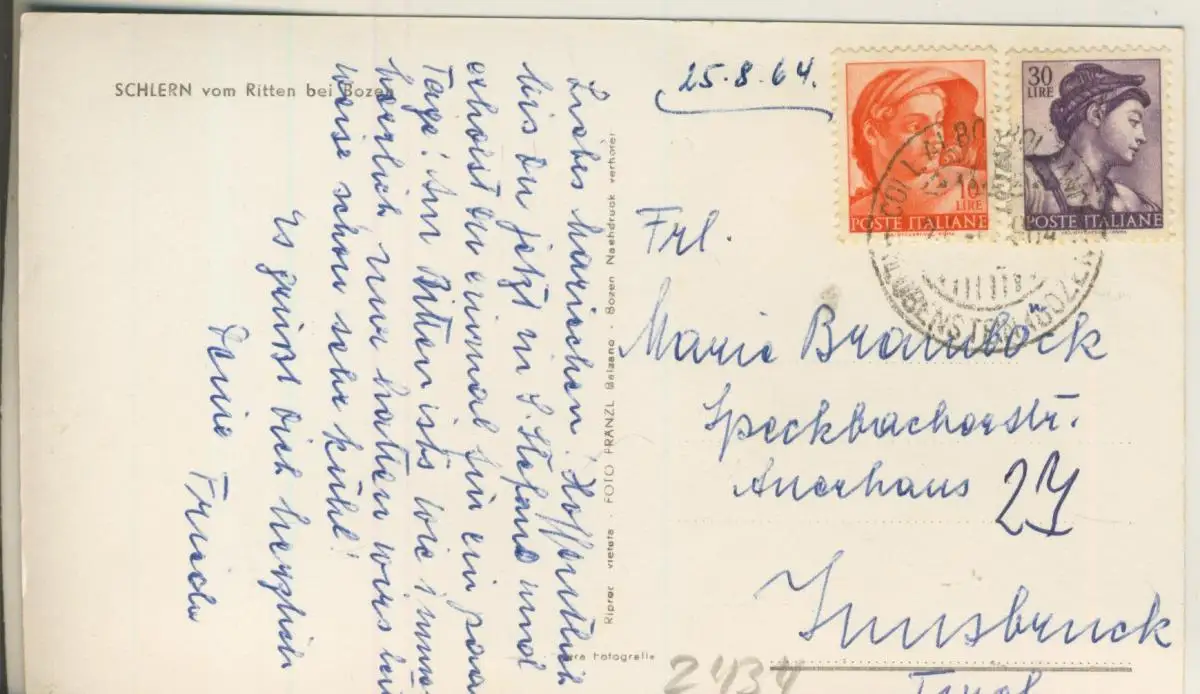 SCHLERN vom Ritten bei Bozen
25.8.64.
Liebes Mariechen! Hoffentlich
bist du jetzt in S. Stefano und
erholst du einmal für ein paar
Tage! Am Ritten ists wie immer
herrlich, nur hatten wirs
weise schon sehr kühl!
Es grüßt dich herzlich
Deine Frieda
Riprod. vietata - FOTO FRANZL Bolzano - Bozen Nachdruck verboten
Fotografie
10
LIRE
POSTE ITALIANE
30
LIRE
POSTE ITALIANE
Frl.
Marie Brambock
Speckbacherstr.
Auerhaus 27
Innsbruck
Tirol
2434